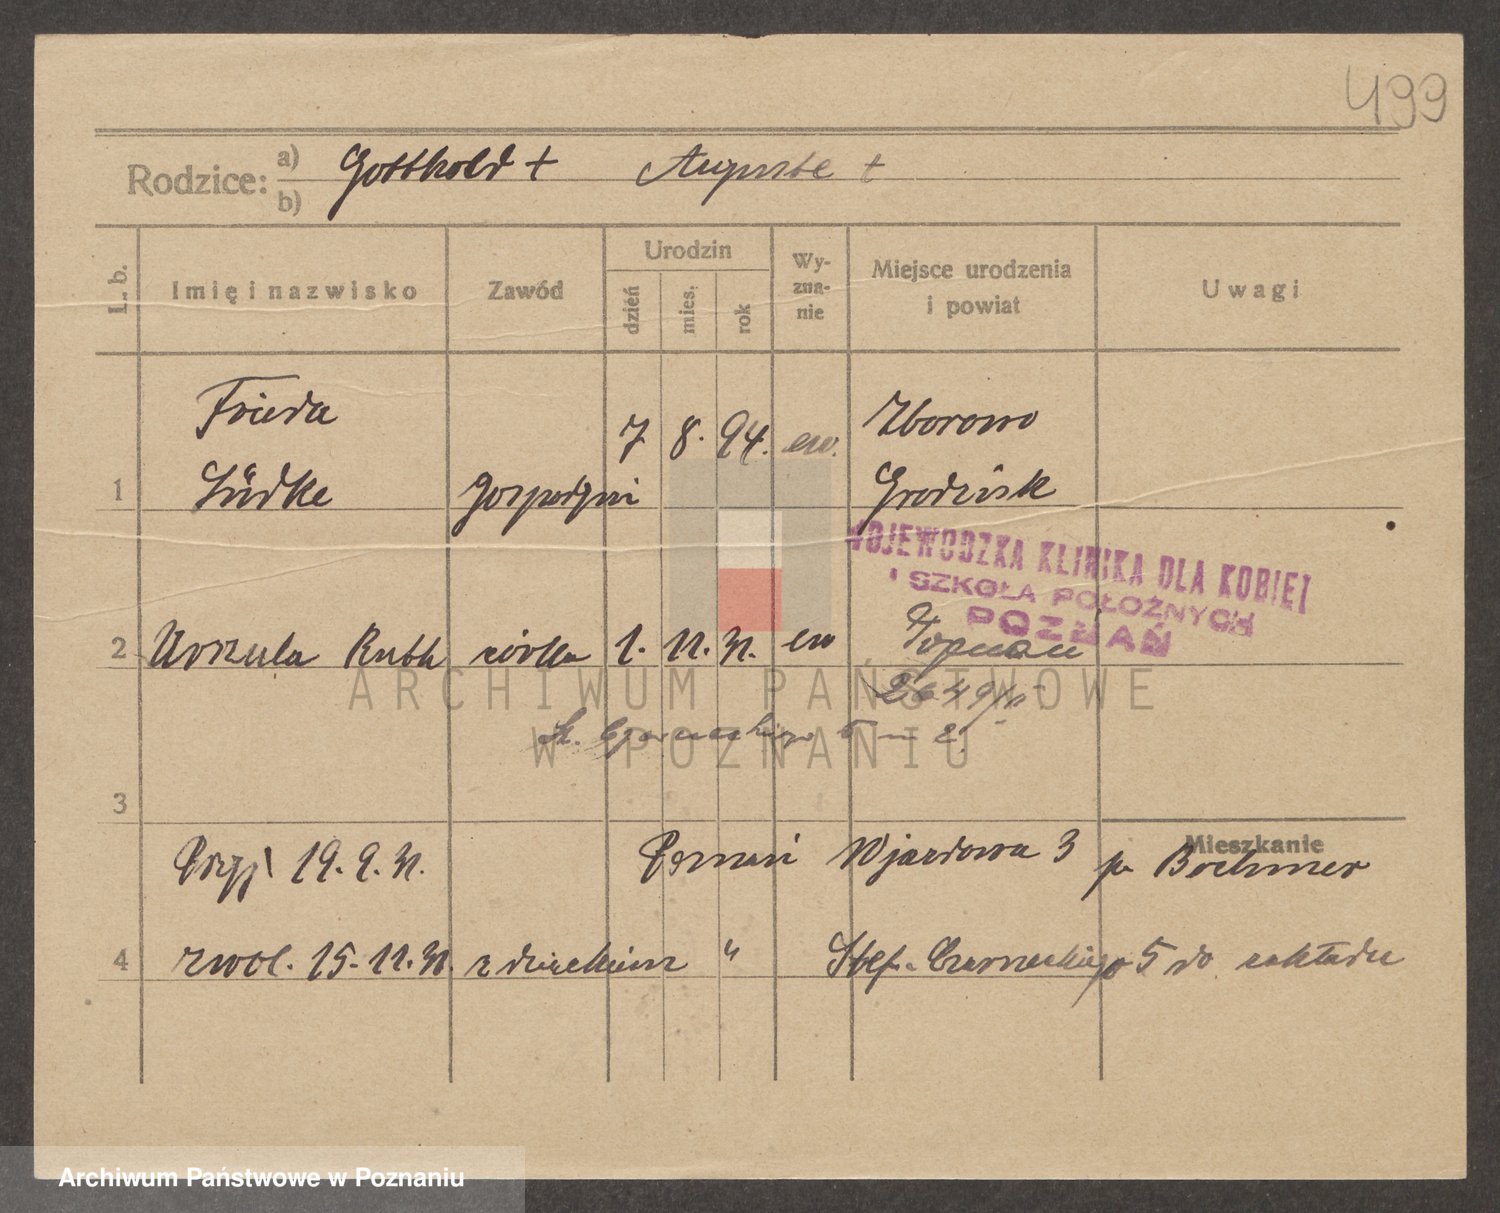 499
Rodzice: a) Gotthold + Auguste +
b)
L. b.
Imię i nazwisko
Zawód
Urodzin
dzień
mies.
rok
Wy-
zna-
nie
Miejsce urodzenia
i powiat
Uwagi
Frieda
Lüdke
1
gospodyni
7 8. 94. ew.
Zborowo
Grodzisk
WOJEWÓDZKA KLINIKA DLA KOBIET
I SZKOŁA POŁOŻNYCH
POZNAŃ
2 Urszula Ruth córka 1. 11. 31. ew Poznań
2649/
5 m 2.
3
Mieszkanie
Przyj 19. 9. 31. Poznań Wjazdowa 3 pa Boehmer
4 zwol. 15. 11. 31. z dzieckiem " Stef. Czarneckiego 5 do zakładu
ARCHIWUM PAŃSTWOWE
W POZNANIU
Archiwum Państwowe w Poznaniu